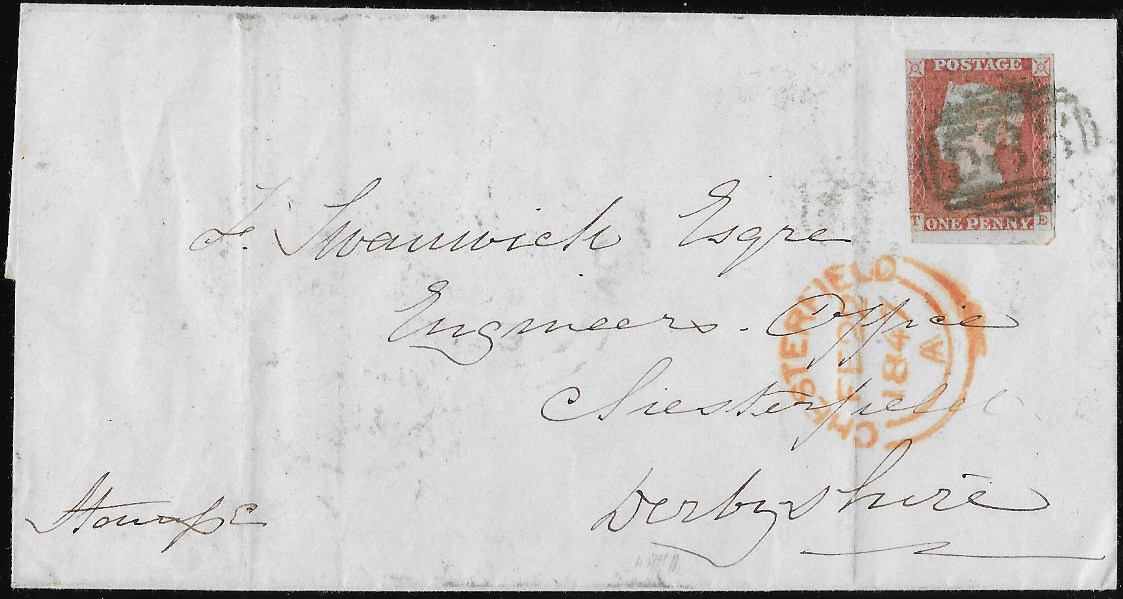 POSTAGE
T ONE PENNY. E
F. Swanwick Esqre
Engineers. Office
Chesterfield
Derbyshire
CHESTERFIELD
1847
A